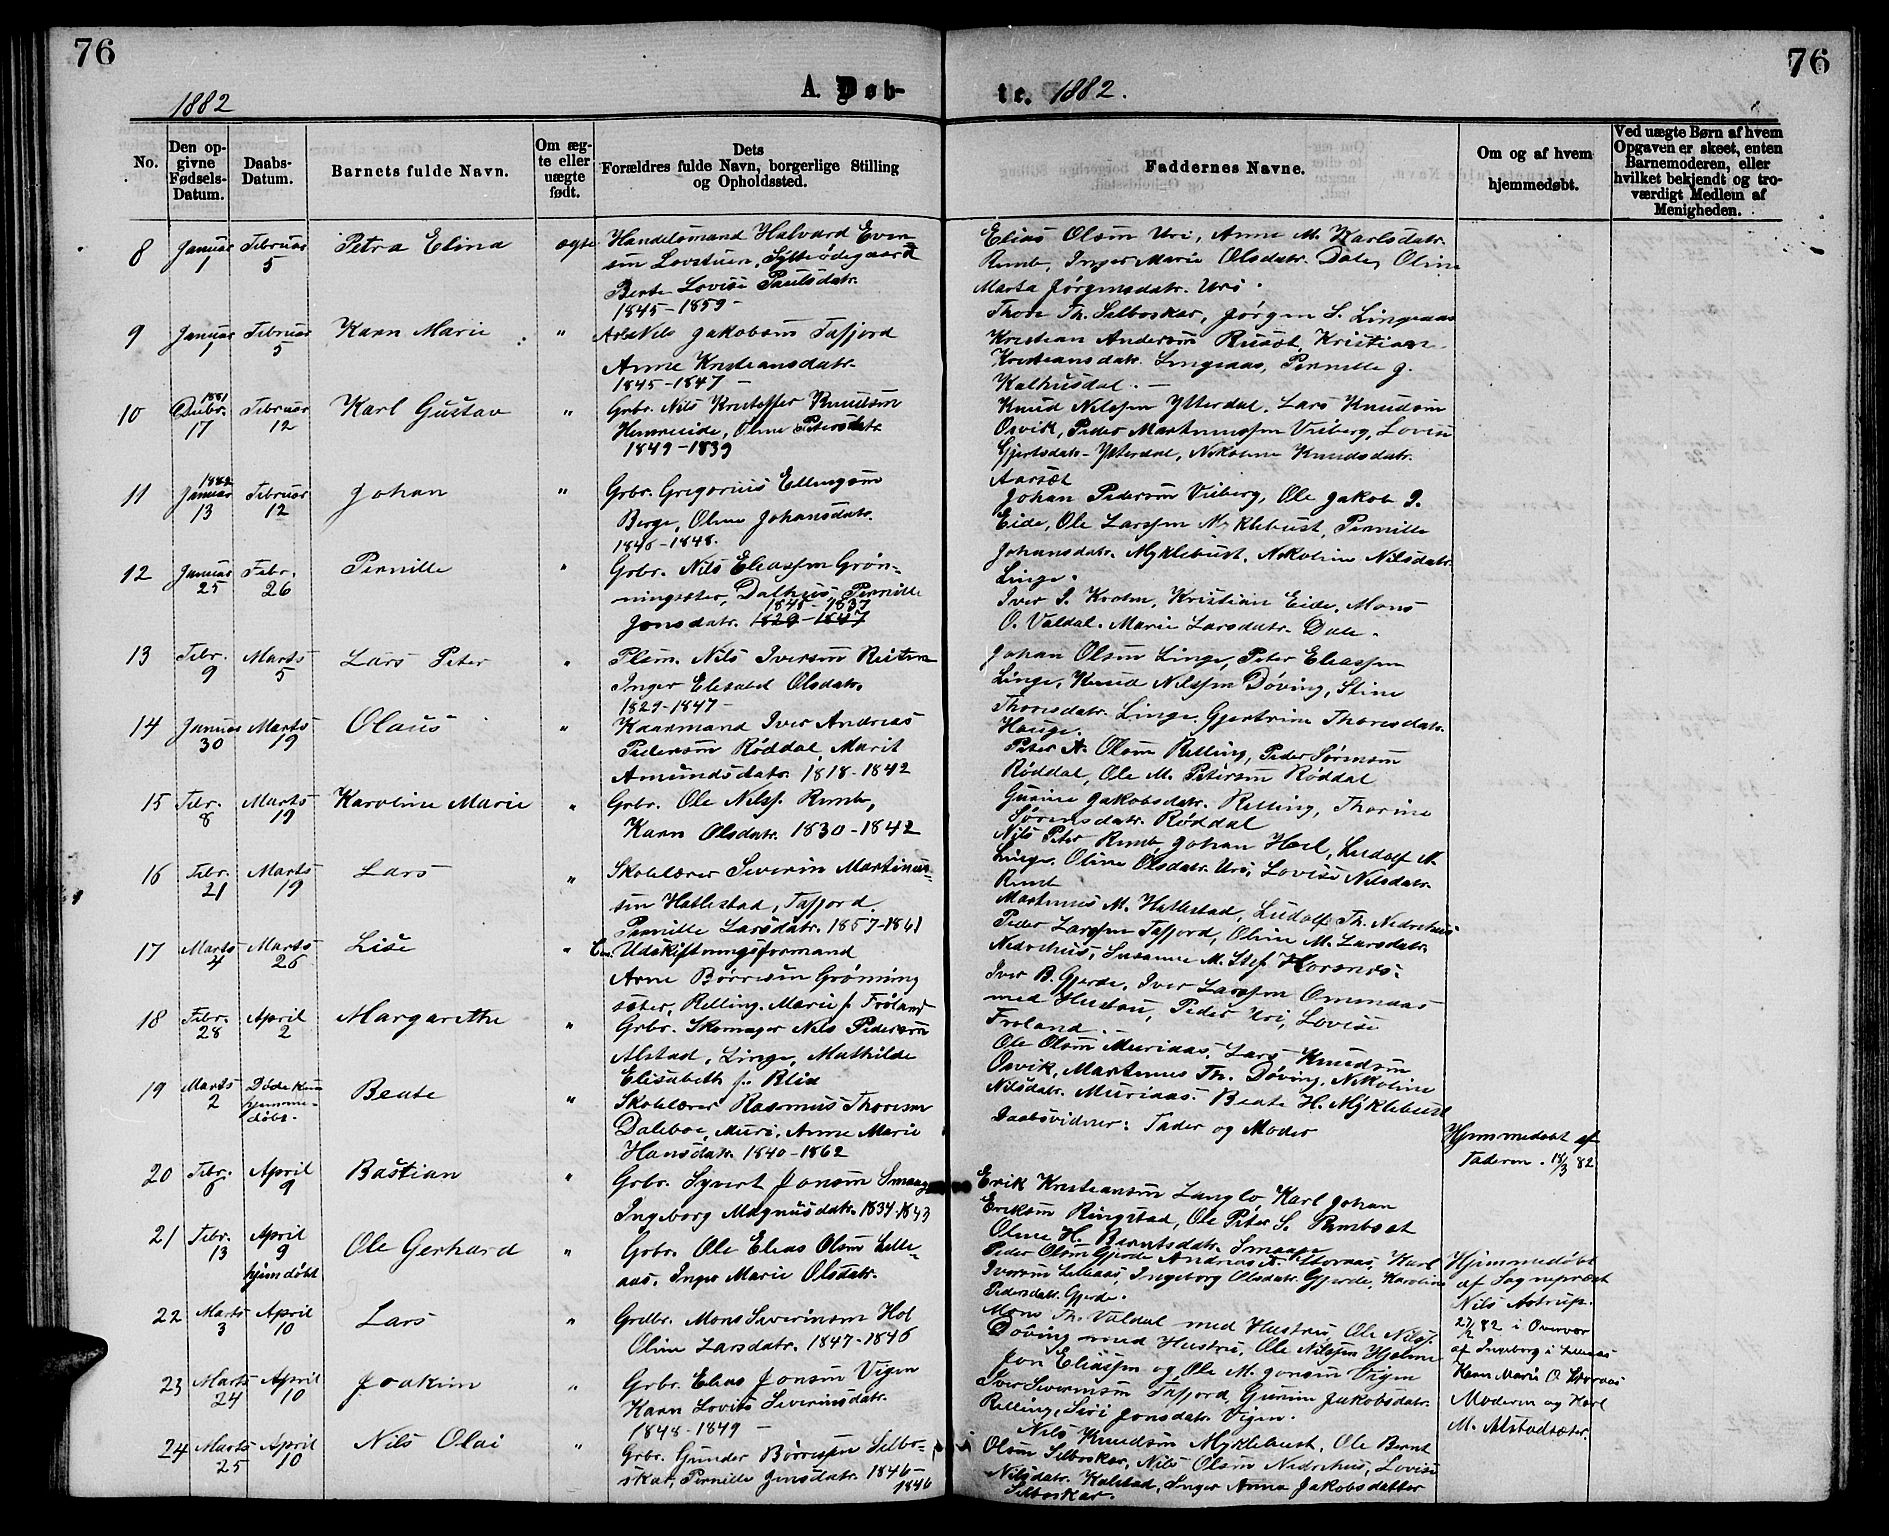 76
76
1882
A. Døb-
te. 1882.
No.
Den op-
givne
Fødsels-
Datum.
Daabs-
Datum.
Barnets fulde Navn.
Om æg-
te eller
uægte
født.
Dets
Forældres fulde Navn, borgerlige Stilling
og Opholdssted.
Faddernes Navne.
Om og af hvem
hjemmedøbt.
Ved uægte Børn af hvem
Opgaven er skeet, enten
Barnemoderen, eller
hvilket bekjendt og tro-
værdigt Medlem af
Menigheden.
8 Januar 1 Februar 5 Petra Elina ægte
Handelsmand Halvard Even-
sen Lovstuen, Sylteødegaard
Berte Lovise Paulsdatr.
1845-1859-
Elias Olsen Uri, Anne M. Karlsdatr.
Remb, Inger Marie Olsdatr. Dale, Oline
Marta Jørgensdatr. Uri.
9 Januar 1 Februar 5 Karn Marie "
Nils Jakobsen Tafjord
Anne Kristiansdatr.
1845-1847-
Thore Th. Selboskar, Jørgen S. Lingeaas
Kristian Andersen Rusæt, Kristian
Kristiansdatr. Lingeaas, Pernille J.
Kalhusdal.-
10 1881 Decbr. 17 Februar 12 Karl Gustav "
Grbr. Nils Kristoffer Knudsen
Hemreeide, Oline Petersdatr.
1849-1839
Knud Nilssen Ytterdal, Lars Knudsen
Osvik, Peder Martinussen Viiberg, Lovise
Gjertsdatr. Ytterdal, Nikoline Knudsdatr.
Aarsæt
11 1882 Januar 13 Februar 12 Johan "
Grbr. Gregorius Ellingsen
Berge, Oline Johansdatr.
1846-1848.
Johan Pedersen Viiberg, Ole Jakob J.
Eide, Ole Larssen Myklebust, Pernille
Johansdatr. Myklebust, Nikoline Nilsdatr.
Linge.
12 Januar 25 Febr. 26 Pernille "
Grbr. Nils Eliassen Grøn-
ningsæter, Dalhus, Pernille
1848-1837
Jonsdatr. 1829-1847
Iver I. Krohn, Kristian Eide, Mons
O. Valdal. Marie Larsdatr. Dale.
13 Febr. 9 Marts 5 Lars Peter "
Plsm. Nils Iversen Reiten
Inger Elisabet Olsdatr.
1829-1847-
Johan Olsen Linge, Peter Eliassen
Linge, Knud Nilssen Døving, Stine
Thoresdatr. Linge. Gjertrine Thoresdatr.
Hauge.
14 Januar 30 Marts 19 Olaus "
Kaarmand Iver Andreas
Pedersen Røddal, Marit
Amundsdatr. 1818-1842
Peter A. Olsen Relling, Peder Sørensen
Røddal, Ole M. Petersen Røddal
Gurine Jakobsdatr. Relling, Thorine
Sørensdatr. Røddal
15 Febr. 8 Marts 19 Karoline Marie "
Grbr. Ole Nilss. Remb,
Karn Olsdatr. 1830-1842
Nils Peter Remb, Johan Hoel, Ludolf N.
Linge. Oline Olsdatr. Uri, Lovise Nilsdatr.
Remb
16 Febr. 21 Marts 19 Lars "
Skolelærer Severin Martinus-
sen Hatlestad, Tafjord.
Pernille Larsdatr. 1857-1861
Martinus M. Hatlestad, Ludolf Th. Nedrehus
Peder Larssen Tafjord, Oline M. Larsdatr.
Nedrehus, Susanne M. Stef. Horsnes.
17 Marts 4 Marts 26 Lise "
Udskiftningsformand
Arne Børresen Grønning
sæter, Relling. Marie f. Frøland
Iver B. Gjerde, Iver Larssen Ommaas
med Hustru, Peder Uri, Lovise
Froland.
18 Febr. 28 April 2 Margarethe "
Grbr. Skomager Nils Pedersen
Alstad, Linge, Mathilde
Elisabeth f. Blix
Ole Olsen Muriaas, Lars Knudsen
Osvik, Martinus Th. Døving, Nikoline
Nilsdatr. Muriaas. Beate H. Myklebust
19 Marts 2 Døde kun hjemme-
døbt. Beate "
Skolelærer Rasmus Thoresen
Daleboe, Muri, Anne Marie
Hansdatr. 1840-1862
Daabsvidner: Fader og Moder
Hjemmedøbt af
Faderen. 18/3 82
20 Febr. 6 April 9 Bastian "
Grbr. Syvert Jonsen Smaage
Ingeborg Magnusdatr. 1834-1843
Erik Kristiansen Langlo Karl Johan
Eriksen Ringstad, Ole Peter S. Rembsæt
Oline H. Berntsdatr. Smaage
21 Febr. 13 April 9 hjemdøbt Ole Gerhard "
Grbr. Ole Elias Olsen Lille-
aas. Inger Marie Olsdatr.
Peder Olsen Gjerde Andreas A. Storaas, Karl
Iversen Lilleaas, Ingeborg Olsdatr. Gjerde, Karoline
Pedersdatr. Gjerde.
Hjemmedøbt
af Sognepræst
Nils Astrup.
27/2 82 i Overvær
af Ingeborg i Lilleaas
Karn Marie O. Storaas
Moderen og Karl
M. Alstadsæter.
22 Marts 3 April 10 Lars "
Grdbr. Mons Severinsen Hol
Oline Larsdatr. 1847-1846
Mons Th. Valdal med Hustru, Ole Nilss.
Døving med Hustru, Ole Nilssen Hjelme
23 Marts 24 April 10 Joakim "
Grbr. Elias Jonsen Vigen
Karn Lovise Severinsdatr.
1848-1849-
Jon Eliassen og Ole M. Jonsen Vigen
Iver Severinsen Tafjord, Gurine Jakobsdatr.
Relling, Siri Jonsdatr. Vigen.
24 Marts 25 April 10 Nils Olai "
Grbr. Gunder Børresen Selbo-
skar, Pernille Jensdatr. 1846-
1846
Nils Knudsen Myklebust, Ole Bernt
Olsen Selboskar, Nils Olsen Nedrehus, Lovise
Nilsdatr. Kalstad, Inger Anna Jakobsdatter
Selboskar.